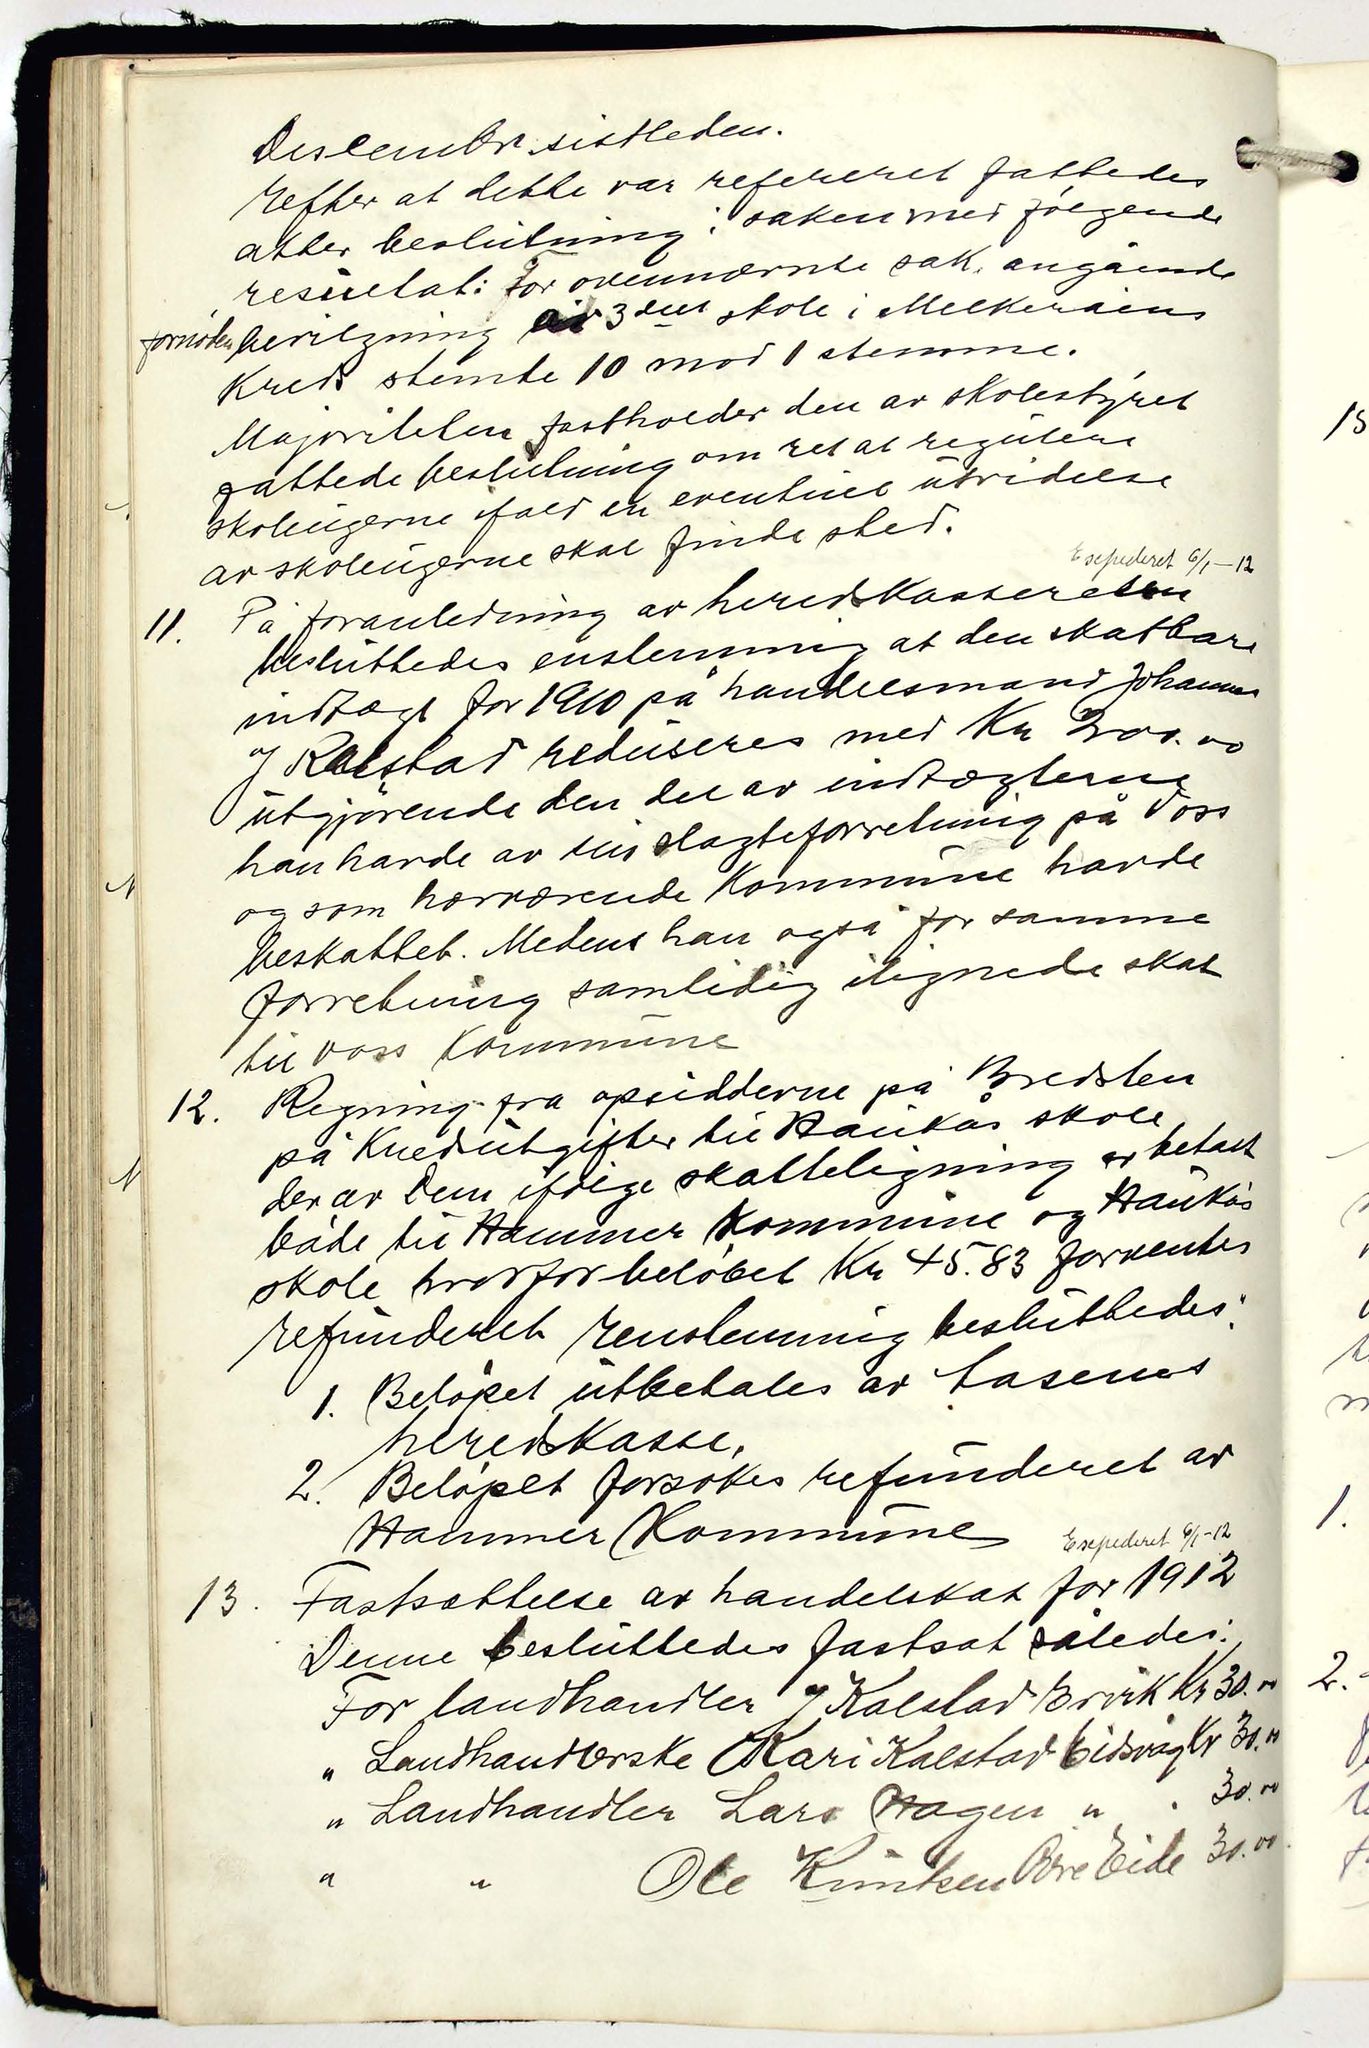 Descembr. sistleden.
Efter at dette var refereret fattedes
atter beslutning i saken med følgende
resultat: For ovennævnte sak, angående
fornøden bevilgning av 3den skole i Melkeråens
Kreds stemte 10 mod 1 stemme.
Majoriteten fastholder den av skolestyret
fattede beslutning om ret at regulere
skoleugerne ifald en eventuel utvidelse
av skoleugerne skal finde sted.
Exspederet 6/1-12
11. På foranledning av heredskasseresen
besluttedes enstemmig at den skatbare
indtægt for 1910 på handelsmand Johannes
J Kalstad reduseres med Kr 200.00
utgjørende den del av indtægterne
han havde av sin slagteforretning på Voss
og som herværende Kommune havde
beskattet. Medens han også for samme
forretning samtidig ilignede skat
til Voss Kommune
12. Regning fra opsidderne på Bredsten
på Kredsutgifter til Haukås skole
der av Dem ifølge skatteligning er betalt
både til Hammer Kommune og Haukås
skole hvorfor beløbet Kr 45.83 forventes
refunderet enstemmig besluttedes:
1. Beløpet utbetales av Åsenes
heredskasse,
2. Beløpet forsøkes refunderet av
Hammer Kommune
Exspederet 6/1-12
13. Fastsættelse av handelskat for 1912
Denne besluttedes fastsat således:
For landhandler J Kalstad Ervik Kr 30.00
" Landhandlerske Kari Kalstad Eidsvåg Kr 30.00
" Landhandler Lars Hagen " . 30.00
" " Ole Knutsen Øvre Eide 30.00.
15
1.
2.